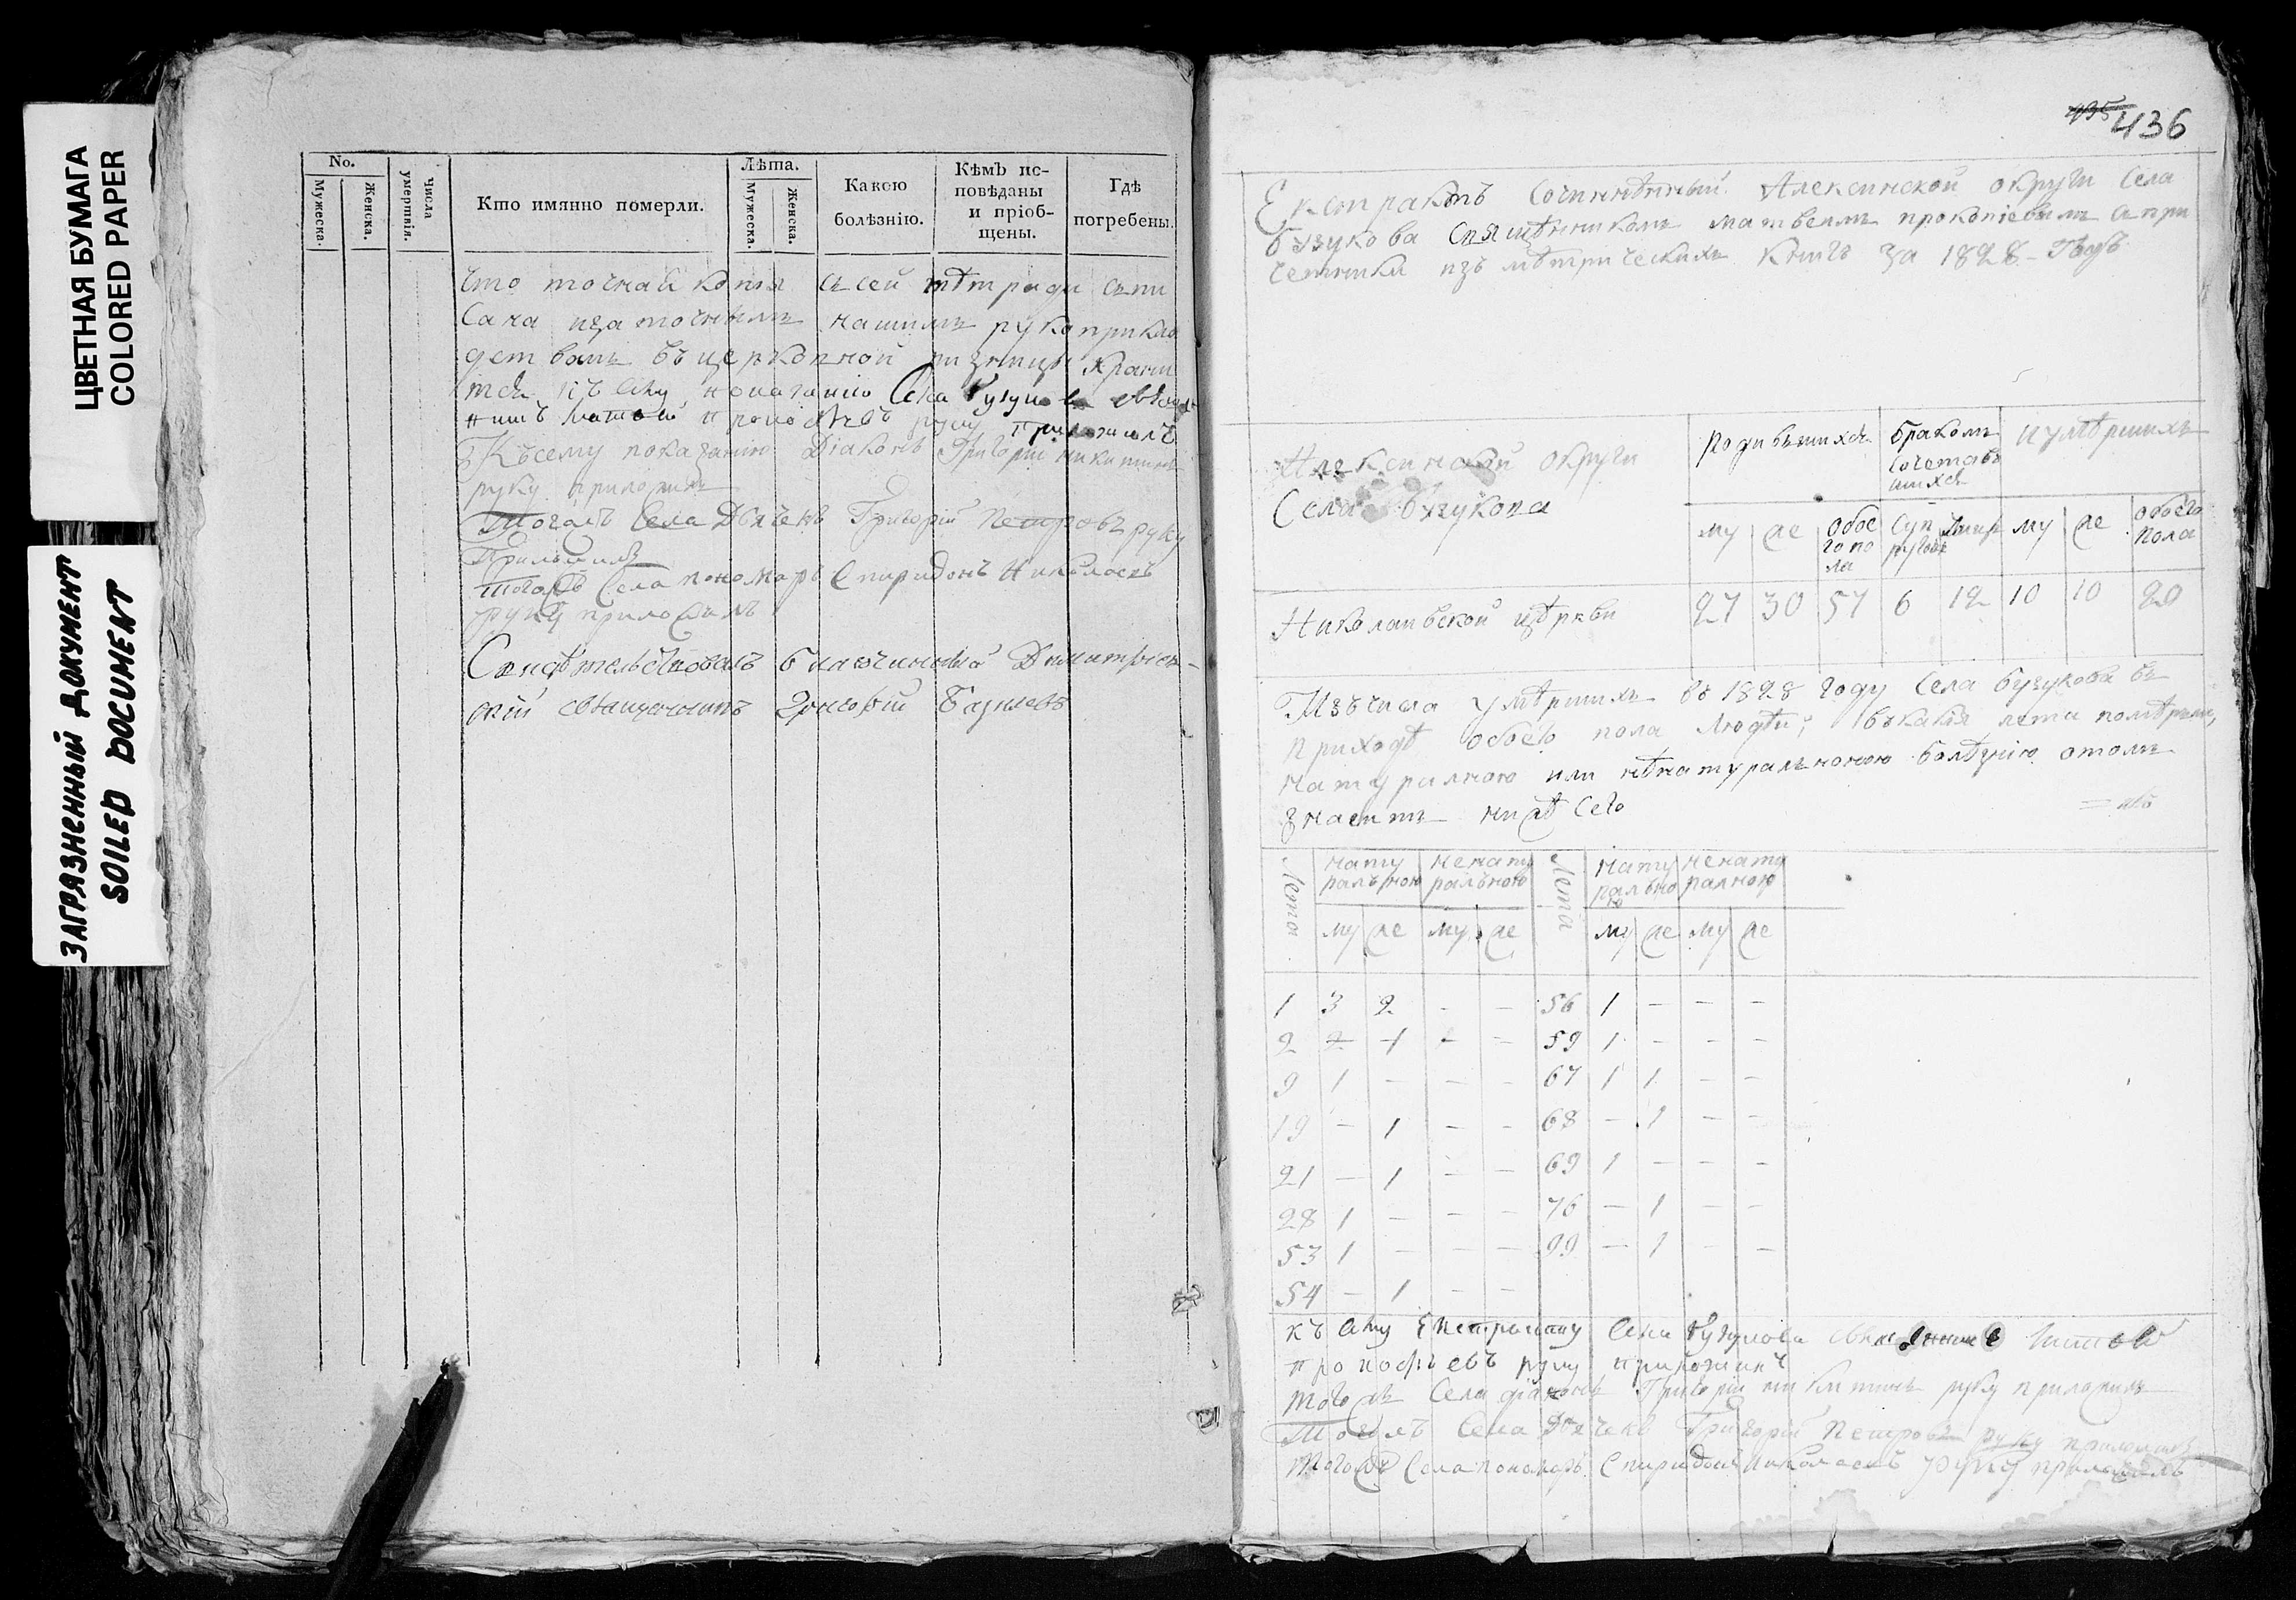 ЦВЕТНАЯ БУМАГА
COLORED PAPER
ЗАГРЯЗНЕННЫЙ ДОКУМЕНТ
SOILED DOCUMENT
No.
Мужеска.
Женска.
Числа умертвія.
Кто имянно померли.
Лѣта.
Мужеска.
Женска.
Какою
болѣзнію.
Кѣмъ ис-
повѣданы
и пріоб-
щены.
Гдѣ
погребены.
что точная копія съ сей тѣтради спи
сана изаточнымъ нашимъ рукоприкла
детвомъ въ церковной ризницы храни
тся къ сему показанию Села Бузукова
нникъ матвей прокофьевъ руку приложилъ
Къ сему показанию Діаконъ Григорій никитинъ
руку приложилъ
Тогожъ Села Дьячекъ Григорій Петровъ руку
Приложилъ
тогожъ Села пономарь Спиридонъ Николаевъ
руку приложилъ
Свидѣтельствовалъ благочинный Димитріев-
скій священникъ Григорій
435 436
Екстрактъ Сочинѣнный Алексинской округи Села
бузукова священникомъ матвеемъ прокопіевымъ съ при
четники изъ мѣтрическихъ книгъ за 1828 Годъ
Алексинской округи
Села Бузукова
родившихся
бракомъ
сочетавъ
шихся
иумѣршихъ
му
же
обое
го по
ла
Суп
ругов
му
же
обоего
пола
Николаивской цѣркви
27 30 57 6 12 10 10 20
Изъ числа умѣршихъ въ 1828 году Села бузукова въ
приходѣ обоего пола людѣй, въкакія лета помѣрли,
натуралною или нѣнатуралноною болѣзнію отомъ
значитъ нижѣ сего
Лета
нату
ралъною
ненату
ралъною
Лета
нату
рально
ю
ненату
ралною
му же му же му же му же
1 3 2 - - 56 1 - - -
2 2 1 - - 59 1 - - -
9 1 - - - 67 1 1 - -
19 - 1 - - 68 - 1 - -
21 - 1 - - 69 1 - - -
28 1 - - - 76 - 1 - -
53 1 - - - 99 - 1 - -
54 - 1 - -
къ сему Екстракту Села Бузукова священникъ матвей
прокофьевъ руку приложилъ
тогожъ Села діаконъ Григорій никитинъ руку приложилъ
Тогожъ Села Дьячекъ Григорій Петровъ руку приложилъ
Тогожъ Села пономарь Спиридонъ Николаевъ руку приложилъ